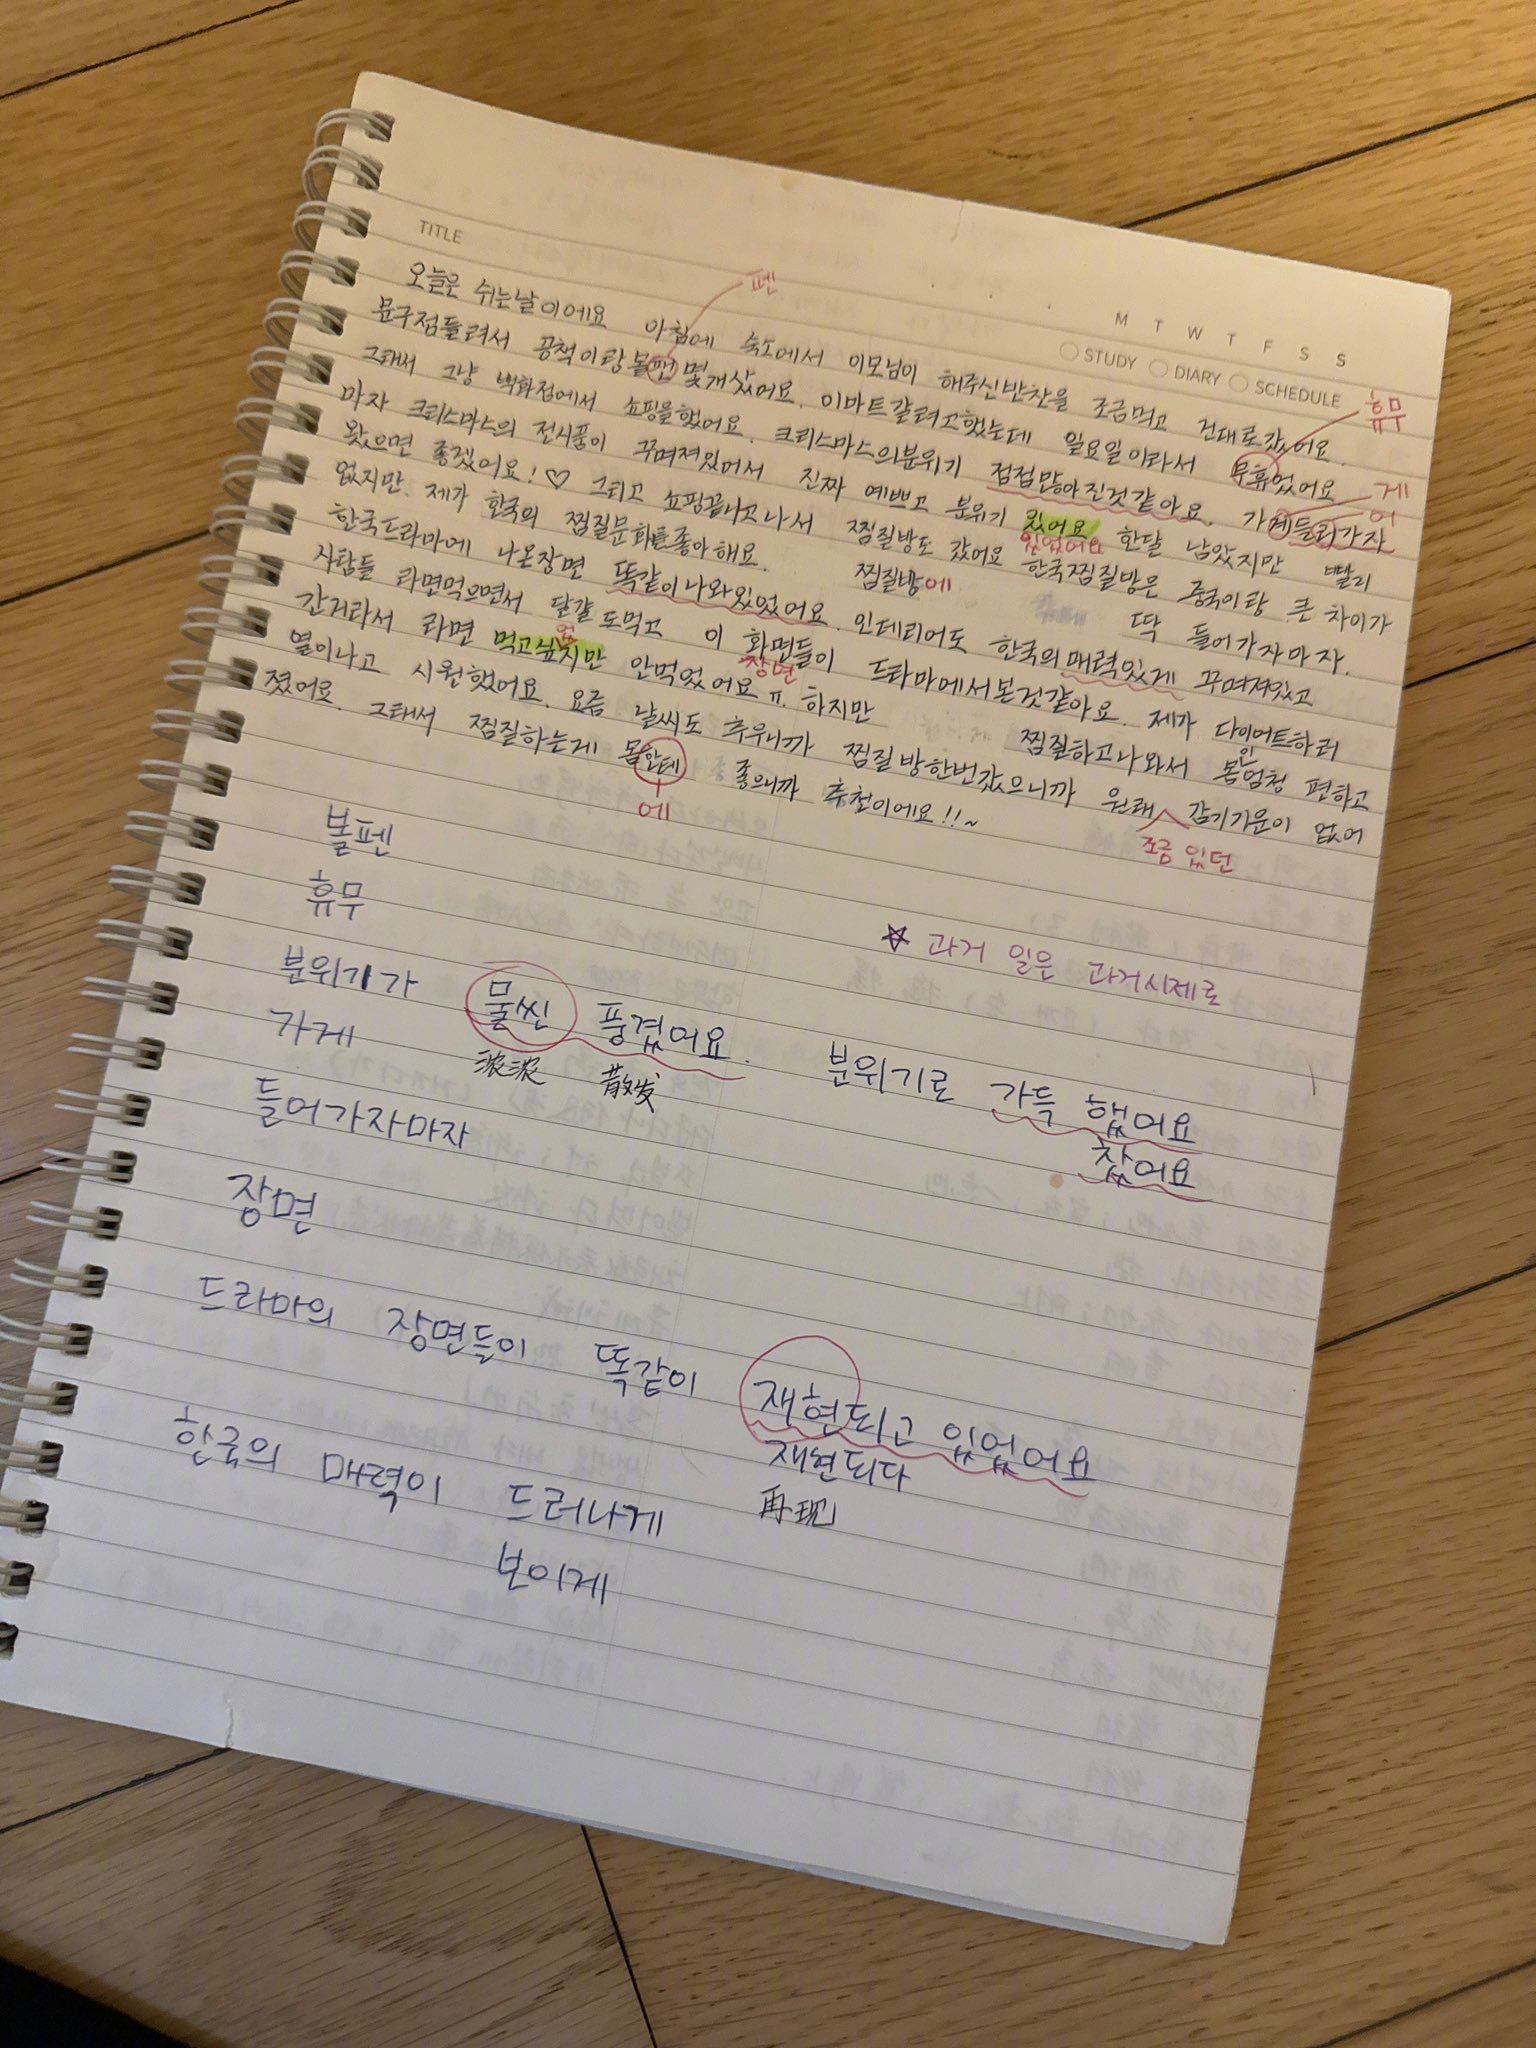 TITLE
M T W T F S S
STUDY DIARY SCHEDULE
펜
휴무
오늘은 쉬는날이에요 아침에 숙소에서 이모님이 해주신반찬을 조금먹고 건대로갔어요.
문구점들려서 공책이랑볼펀 몇개샀어요. 이마트갈려고했는데 일요일이라서 무휴었어요
그래서 그냥 백화점에서 쇼핑을했어요. 크리스마스의분위기 점점많아진것같아요. 가게들러가자
게
어
마자 크리스마스의 전시품이 꾸며져있어서 진짜 예쁘고 분위기 있어요 한달 남았지만 빨리
있었어요
왔으면 좋겠어요!♡ 그리고 쇼핑끝나고나서 찜질방도 갔어요 한국찜질방은 중국이랑 큰 차이가
없지만. 제가 한국의 찜질문화를좋아해요. 찜질방에 딱 들어가자마자.
한국드라마에 나온장면 똑같이나와있었어요. 인테리어도 한국의매력있게 꾸며져있고
사람들 라면먹으면서 달걀도먹고 이 화면들이 드라마에서본것같아요. 제가 다이어트하러
장면
간거라서 라면 먹고싶지만 안먹었어요ㅠ. 하지만 찜질하고나와서 몸엄청 편하고
었
열이나고 시원했어요. 요즘 날씨도 추우니까 찜질방한번갔으니까 원래 감기기운이 없어
이
조금 있던
졌어요. 그래서 찜질하는게 몸안테 좋으니까 추천이에요!!~
에
볼펜
휴무
☆ 과거 일은 과거시제로
분위기가 물씬 풍겼어요. 분위기로 가득 했어요
浓浓 散发 찼어요
가게
들어가자마자
장면
드라마의 장면들이 똑같이 재현되고 있었어요
재현되다
再现
한국의 매력이 드러나게
보이게